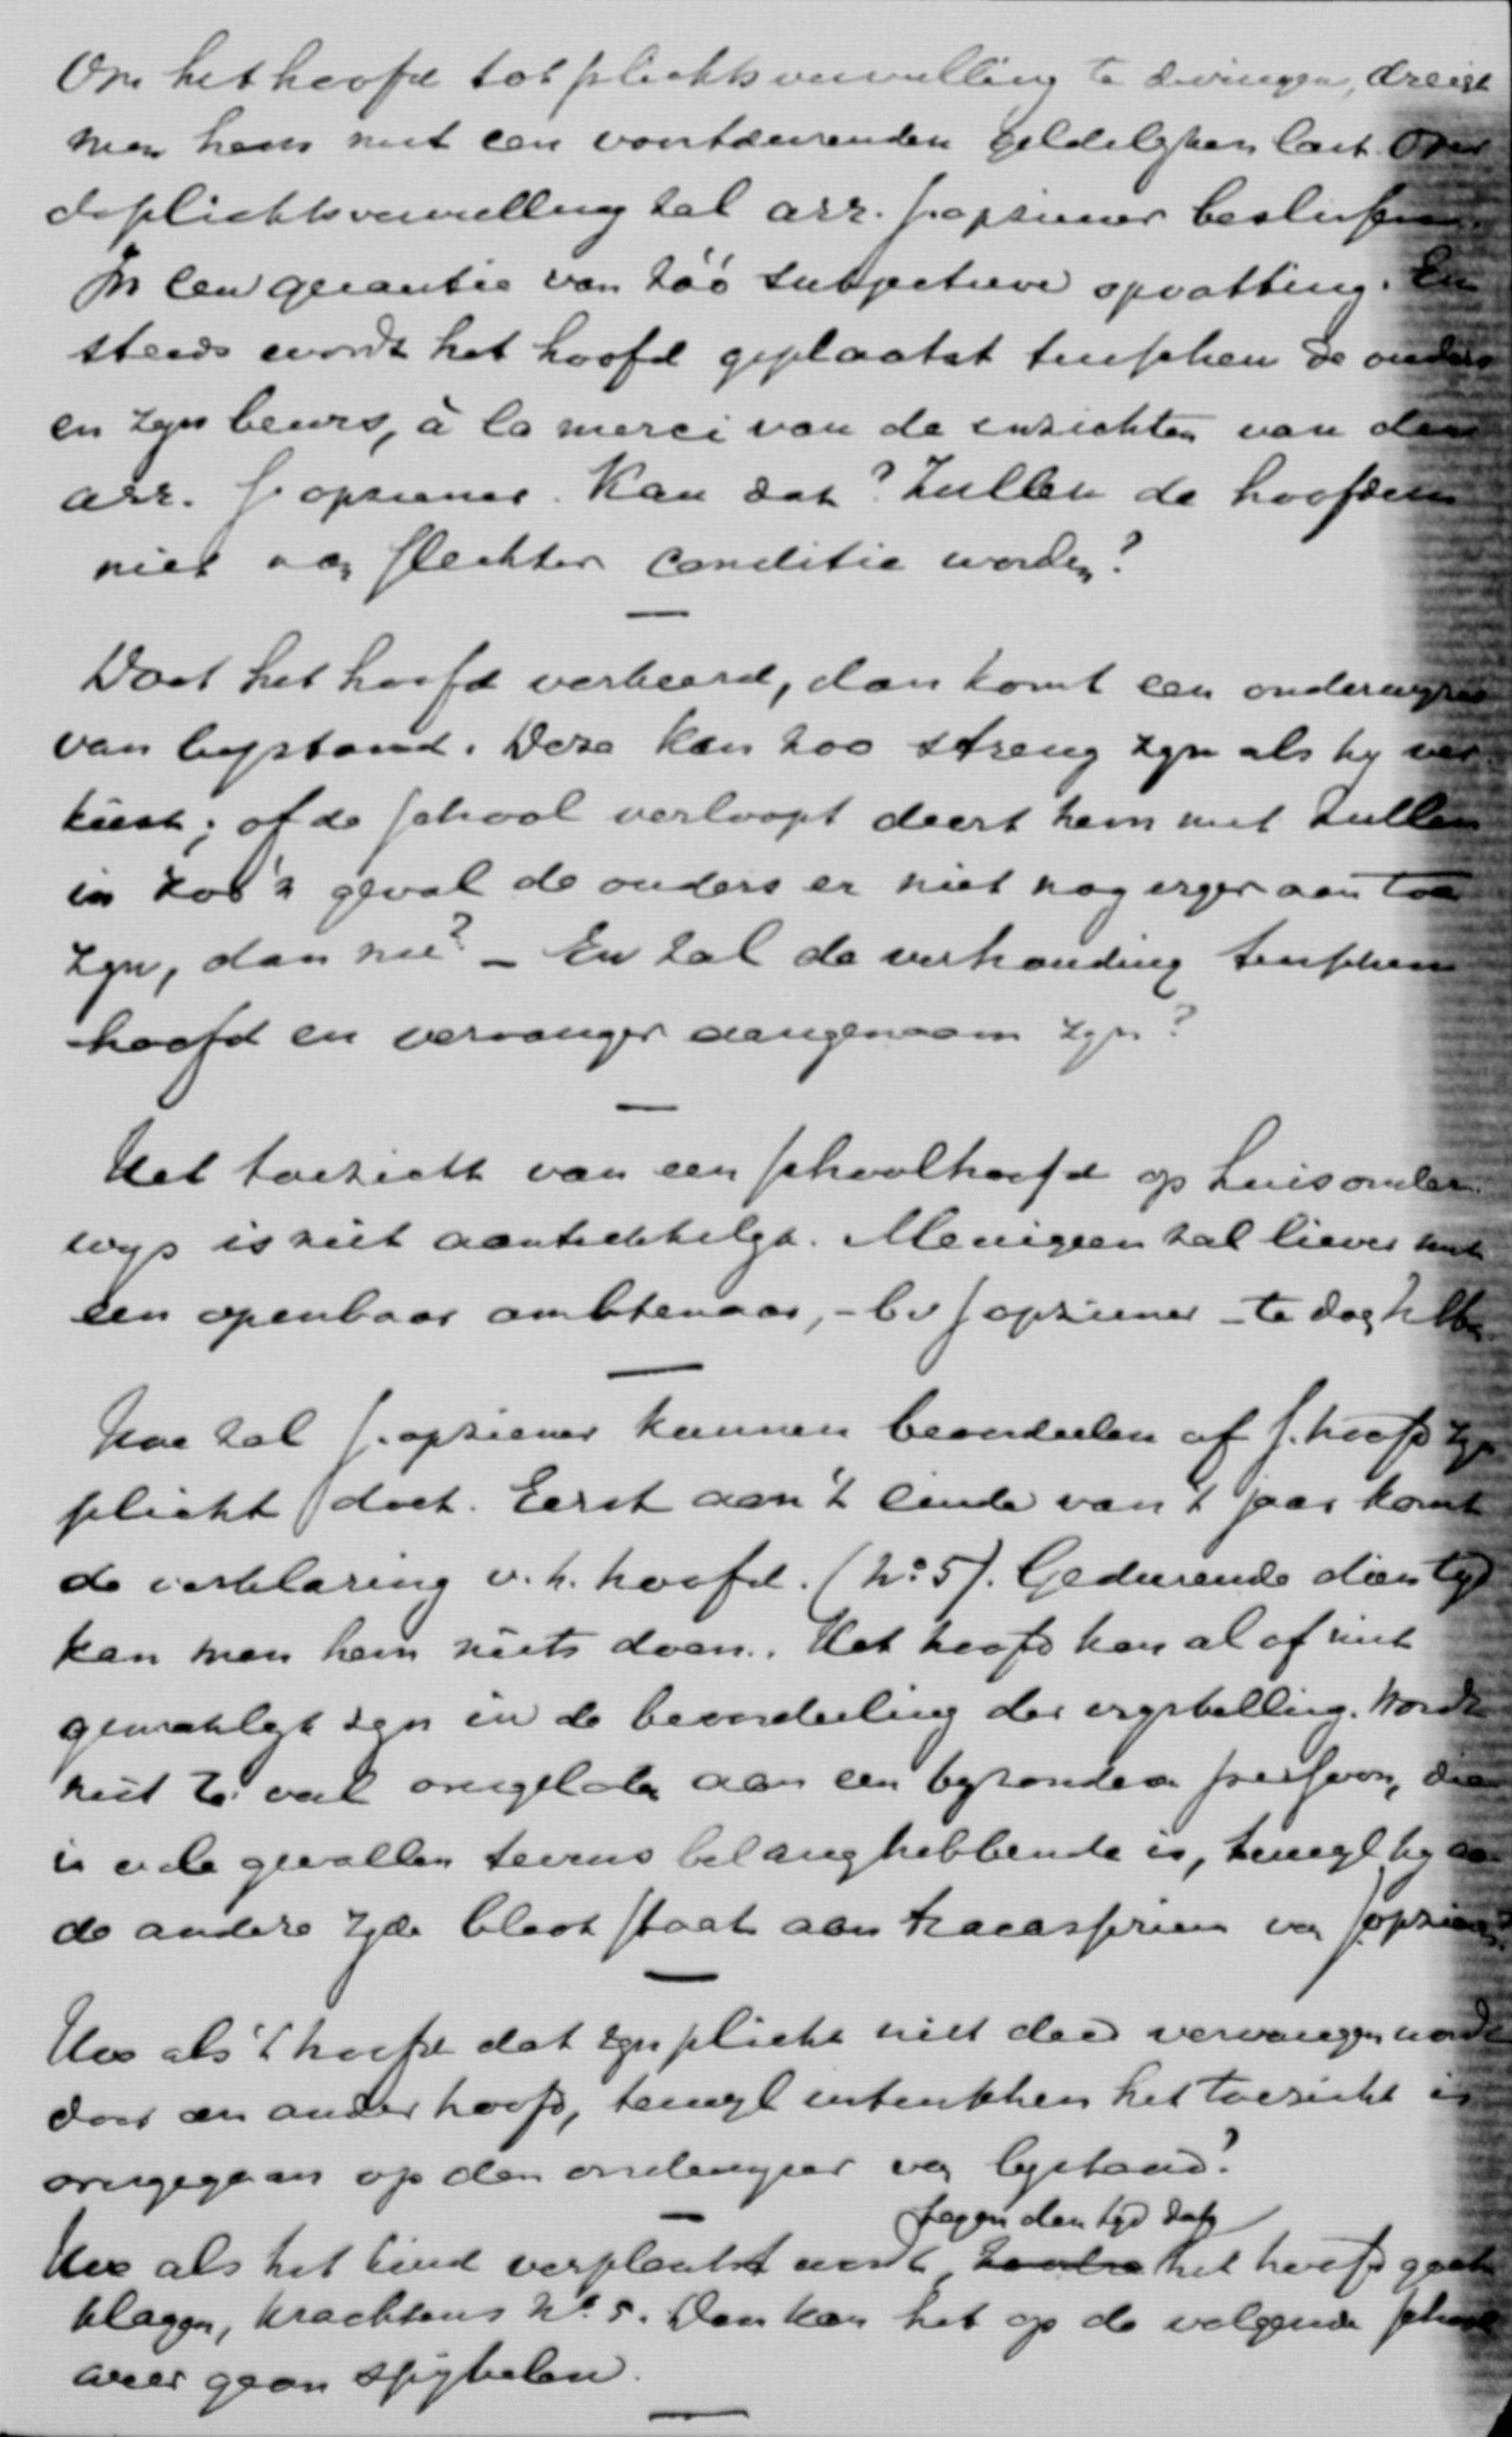 Om het hoofd tot plichtsvervulling te dwingen, dreigt
men hem met een voortdurenden geldelyken last. Over
de plichtsvervulling zal arr. s. opziener beslissen.
Is een quaestie van zóó subjectieve opvatting. En
steeds wordt het hoofd geplaatst tusschen de ouders
en zyn beurs, à la merci van de inzichten van den
arr. s. opziener. Kan dat? Zullen de hoofden
niet van slechter conditie worden?
—
Doet het hoofd verkeerd, dan komt een onderwyzer
van bystand. Deze kan zoo streng zyn als hy ver-
kiest; of de school verloopt deert hem niet. Zullen
in zoo'n geval de ouders er niet nog erger aan toe
zyn, dan nu? – En zal de verhouding tusschen
hoofd en vervanger aangenaam zyn?
—
Het toezicht van een schoolhoofd op huisonder-
wys is niet aantrekkelyk. Menigeen zal liever met
een openbaar ambtenaar, – bv s opziener – te doen hebben.
—
Hoe zal s. opziener kunnen beoordeelen of s. hoofd zyn
plicht doet. Eerst aan 't einde van 't jaar komt
de verklaring v. h. hoofd. (No 5). Gedurende dien tyd
kan men hem niets doen. Het hoofd kan al of niet
gemakkelyk zyn in de beoordeeling der vrystelling. Wordt
niet te veel overgelaten aan een byzonder persoon, die
in vele gevallen tevens belanghebbende is, terwyl hy aan
de andere zyde bloot staat aan tracasserieën van s. opziener?
—
Hoe als 't hoofd dat zyn plicht niet deed vervangen wordt
door een ander hoofd, terwyl intusschen het toezicht is
overgegaan op den onderwyzer van bystand?
—
tegen den tyd dat
Hoe als het kind verplaatst wordt, het hoofd gaat
klagen, krachtens No. 5. Dan kan het op de volgende school
weer gaan spybelen.
—